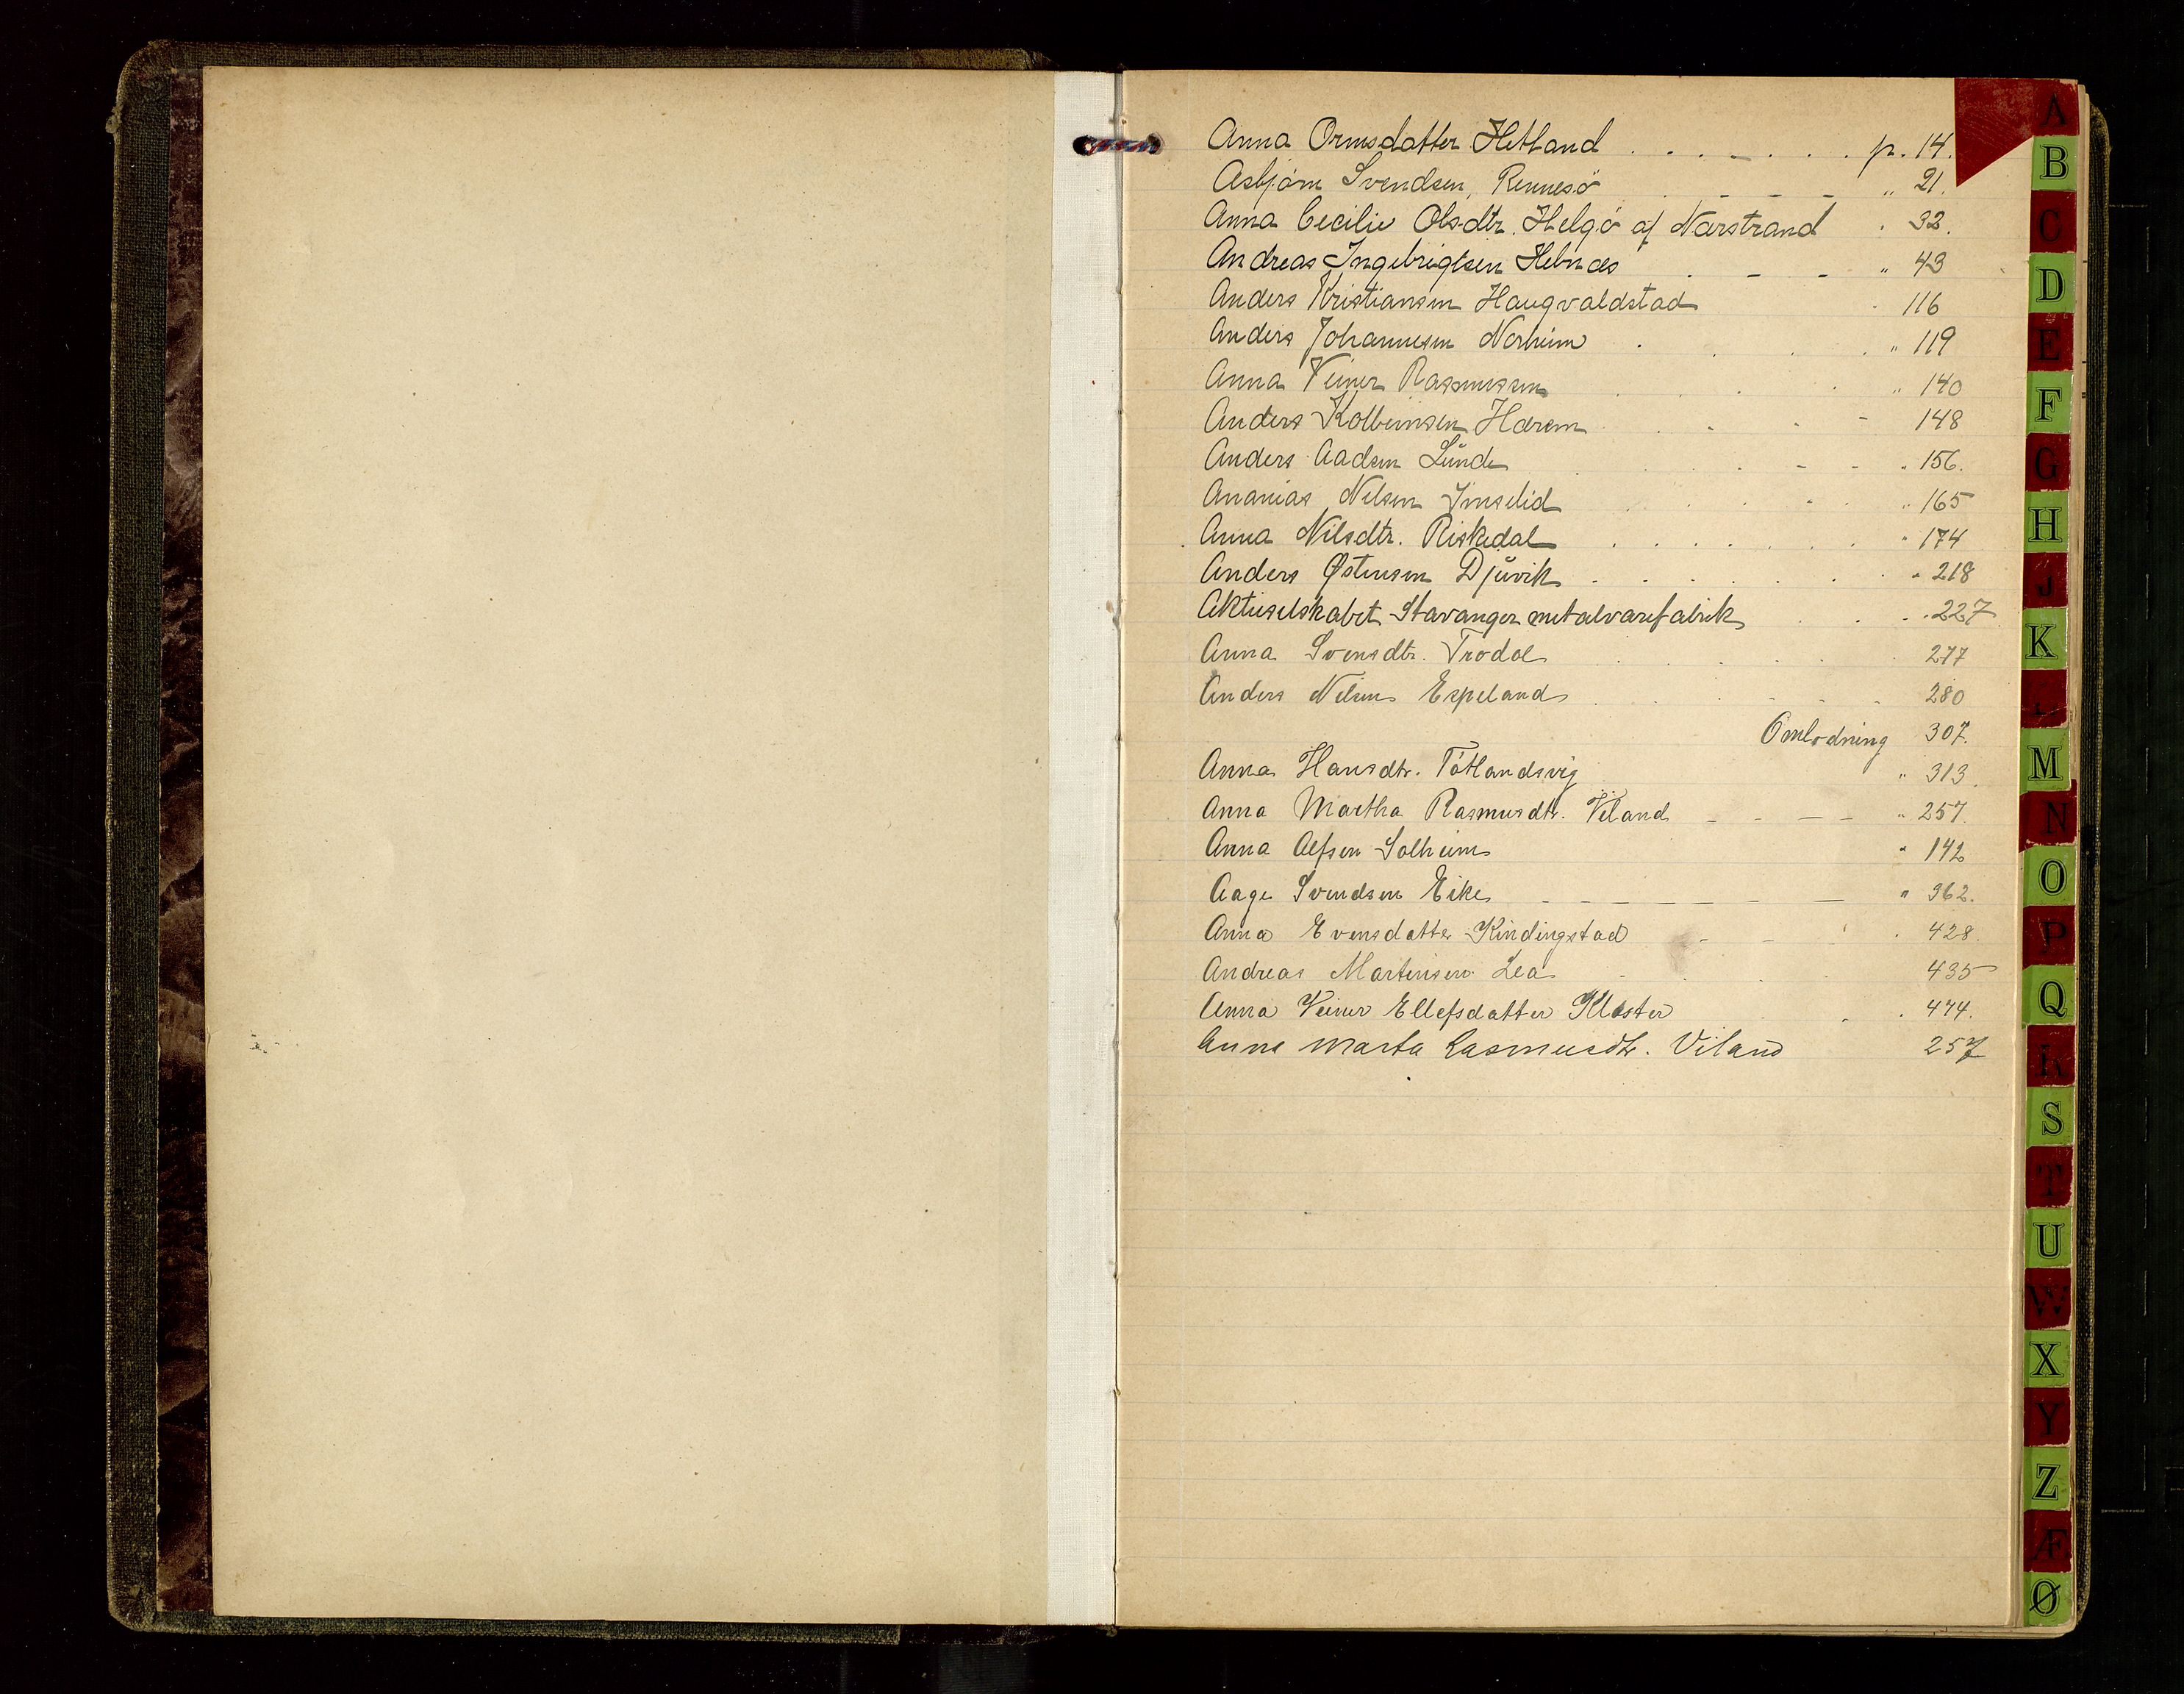 Anna Ormsdatter Hetland . . . . . . . p. 14.
Asbjörn Svendsen, Rennesö - - - - " 21.
Anna Cecilie Olsdtr. Helgö af Narstrand . 32.
Andreas Ingebrigtsen Hebnæs . - - " 43
Anders Kristiansen Haugvaldstad . 116
Anders Johannesen Norheim . . . . " 119
Anna Veiner Rasmussen . . . " 140
Anders Kolbeinsen Harem . . . - 148
Anders Aadsen Lunde . . - - " 156.
Ananias Nilsen Imslid . . . . " 165
Anna Nilsdtr. Riskedal . . . . . . . " 174
Anders Østensen Djuvik . . . . . . . " 218
Aktieselskabet Stavanger metalvarefabrik . . . 227
Anna Svensdtr. Trodal . . . . 277
Anders Nilsen Espeland . . . . 280
Omlodning 307.
Anna Hansdtr. Tötlandsvig " 313.
Anna Martha Rasmusdtr. Viland - - - - " 257.
Anna Alfsen Solheim " 142
Aage Svendsen Eike - - - - - - - " 362.
Anna Evensdatter Kindingstad - - . . 428.
Andreas Martinsen Lea - . . 435
Anna Veiner Ellefsdatter Kloster . . 474.
Anna Marta Rasmusdtr. Viland 257
A
B
C
D
E
F
G
H
J
K
L
M
N
O
P
Q
R
S
T
U
W
X
Y
Z
Æ
Ø